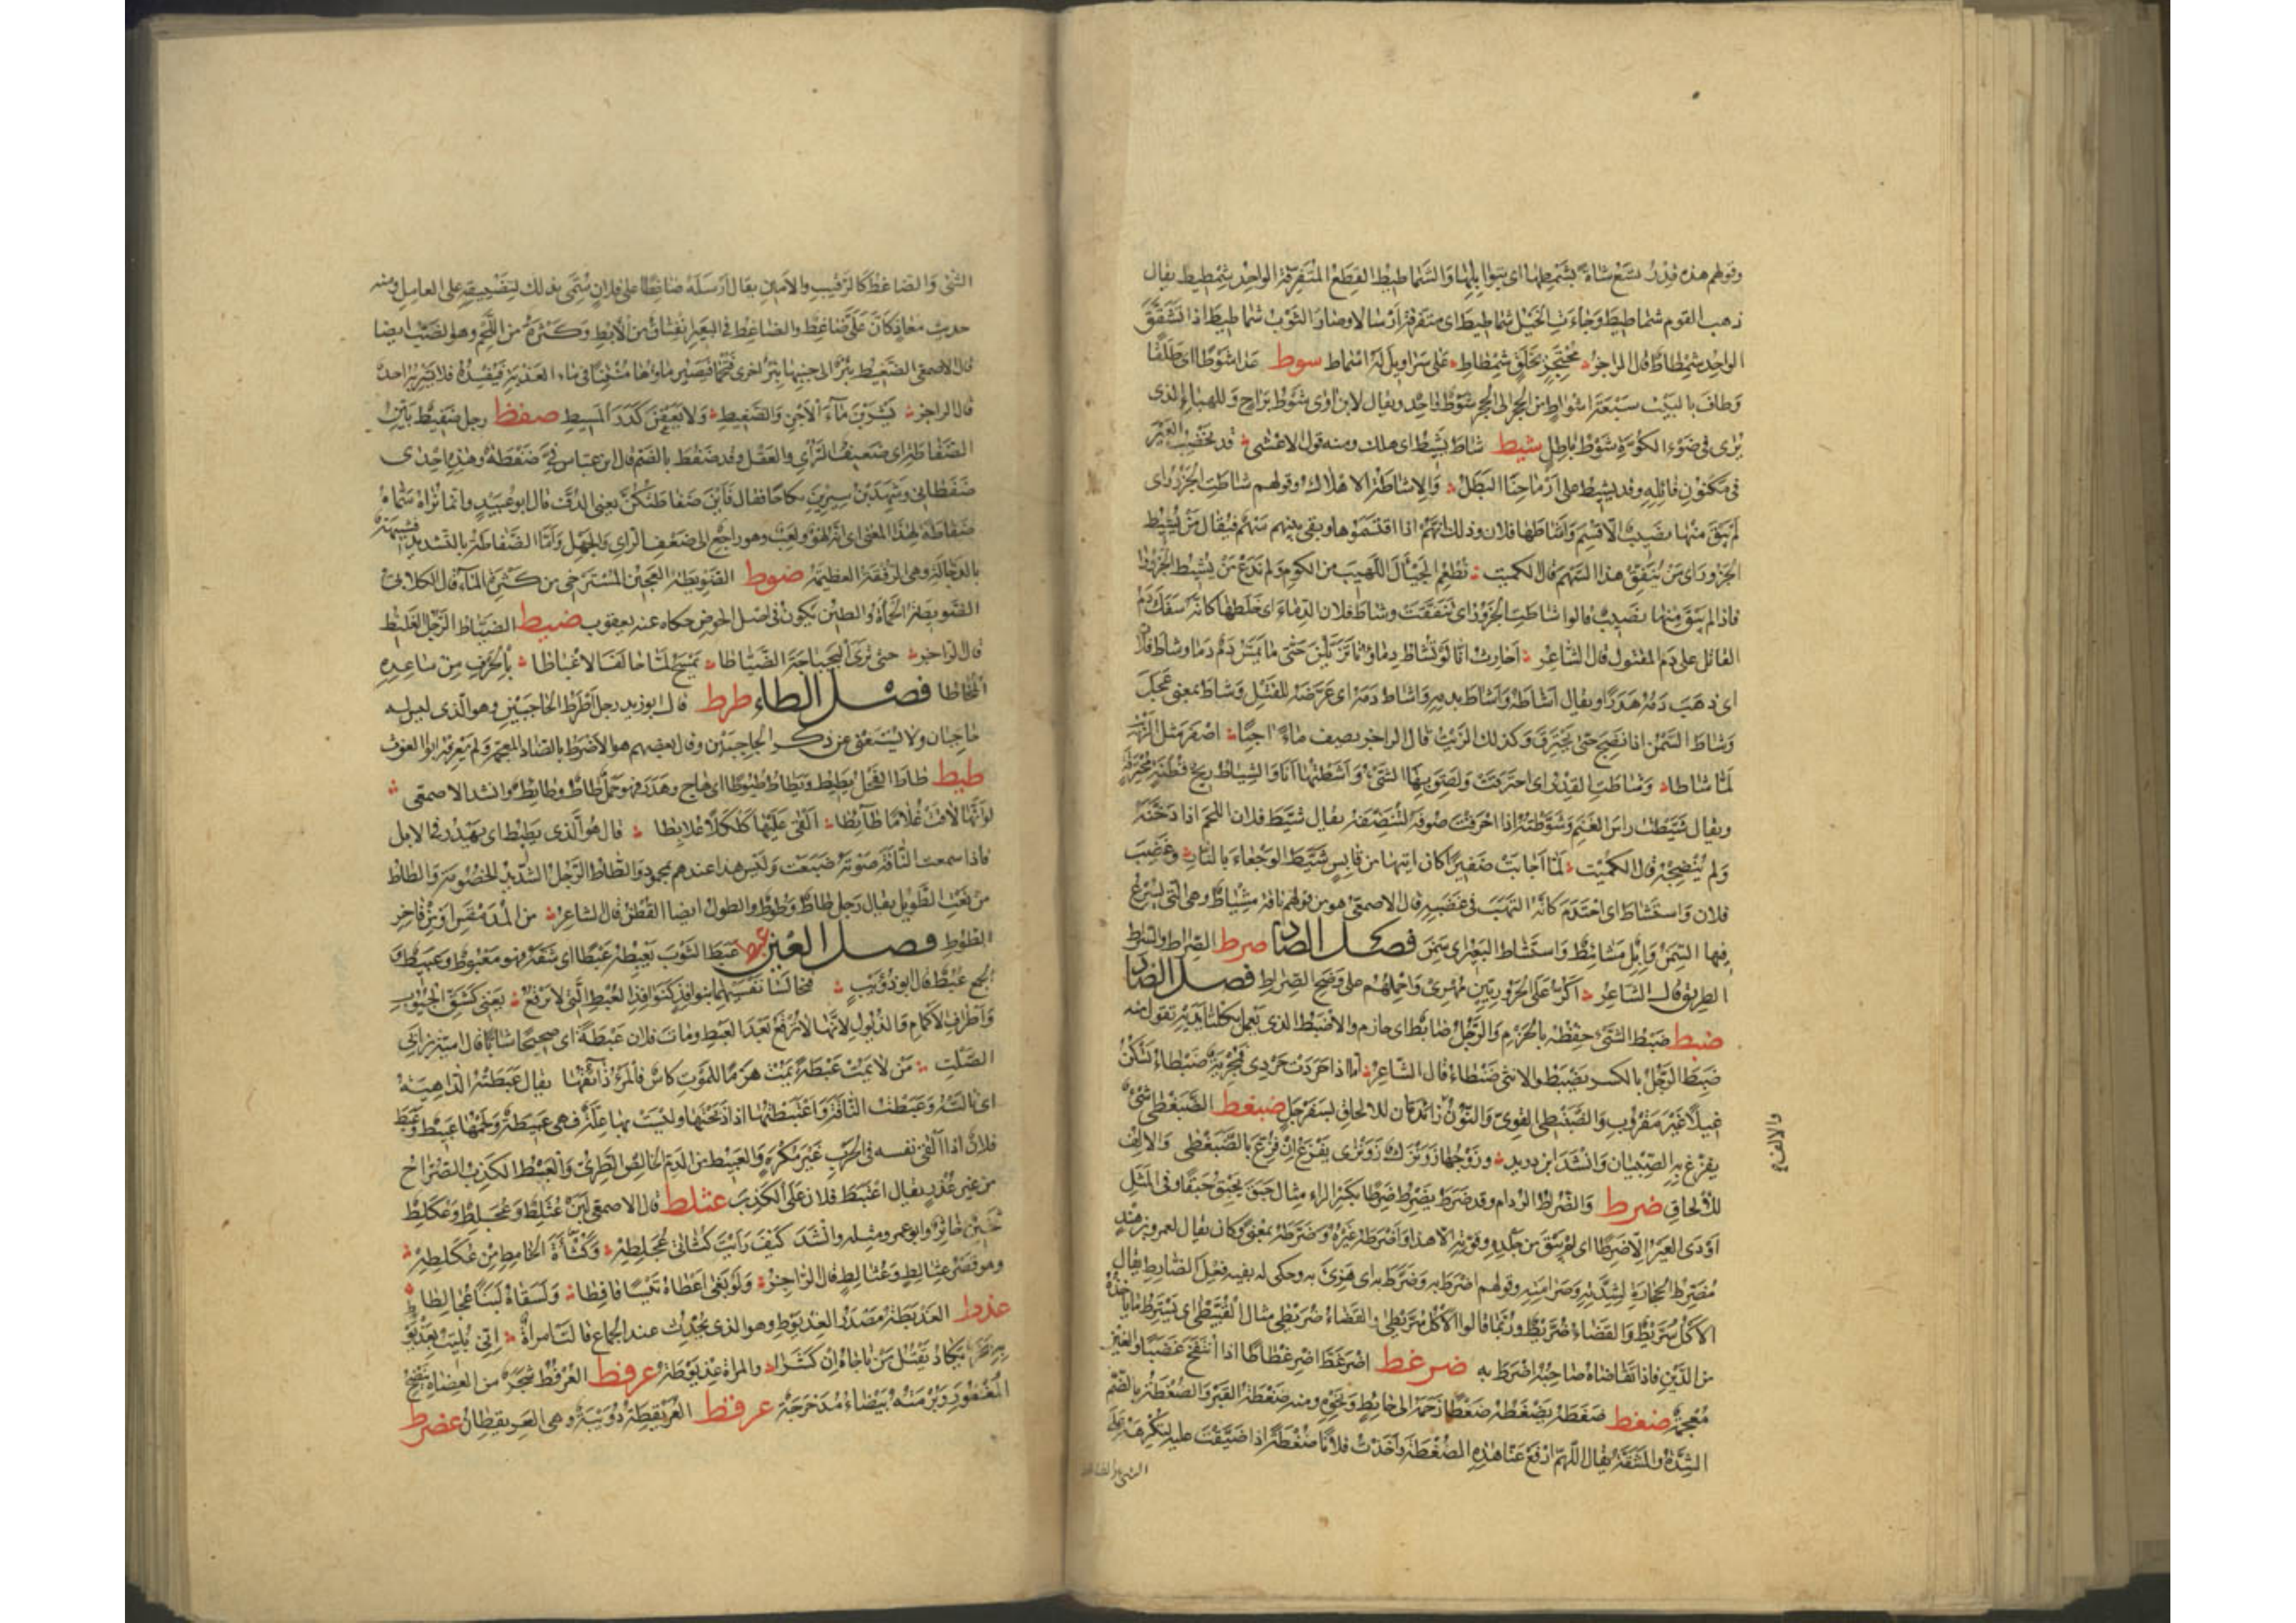 وقولهم هذه قدر تسع شاة بشمطها اى بتوابلها والشماطيط القطع المتفرقة الواحد شمطيط يقال
ذهب القوم شماطيط وجاءت الخيل شماطيط اى متفرقة ارسالا وصار الثوب شماطيط اذا تشقق
الواحد شمطاط قال الراجز محتجز بخلق شمطاط على سراويل له اسماط سوط عدا شوطا اى طلقا
وطاف بالبيت سبعة اشواط من الحجر الى الحجر شوط واحد ويقال لابن آوى شوط براح وللهباء الذى
يرى فى ضوء الكوة شوط باطل شيط شاط يشيط اى هلك ومنه قول الاعشى قد نخضب العير
فى مكنون فائله وقد يشيط على ارماحنا البطل والاشاطة الاهلاك وقولهم شاطت الجزور اى
لم يبق منها نصيب الا قسم واشاطها فلان وذلك انهم اذا اقتسموها وبقى بينهم سهم فيقال من يشيط
الجزور اى من ينفق هذا السهم قال الكميت نطعم الجيأل اللهيب من الكوم ولم ندع من يشيط الجزورا
فاذا لم يبق منها نصيب قالوا شاطت الجزور اى تنفقت وشاط فلان الدماء اى خلطها كانه سفك دم
القاتل على دم المقتول قال الشاعر احارث انا لو تشاط دماؤنا تزيلن حتى ما يمس دم دما وشاط فلان
اى ذهب دمه هدرا ويقال اشاطه واشاط بدمه واشاط دمه اى عرضه للقتل وشاط بمعنى عجل
وشاط السمن اذا نضج حتى يحترق وكذلك الزيت قال الراجز يصف ماء آجنا اصفر مثل الزيت
لما شاطا وشاطت القدر اى احترقت ولصق بها الشىء واشطتها انا والشياط ريح قطنة محترقة
ويقال شيطت راس الغنم وشوطته اذا احرقت صوفه لتنظفه يقال شيط فلان اللحم اذا دخنه
ولم ينضجه قال الكميت لما اجابت صفيرا كان ايتها من قابس شيط الوجعاء بالنار وغضب
فلان واستشاط اى احتدم كانه التهب فى غضبه قال الاصمعى هو من قولهم ناقة مشياط وهى التى يسرع
فيها السمن وابل مشائيط واستشاط البعير اى سمن فصل الصاد صرط الصراط والسراط
الطريق قال الشاعر اكر على الحروريين مهرى واحملهم على وضح الصراط فصل الضاد
ضبط ضبط الشىء حفظه بالحزم والرجل ضابط اى حازم والاضبط الذى يعمل بكلتا يديه تقول منه
ضبط الرجل بالكسر يضبط والانثى ضبطاء قال الشاعر اما اذا حردت حردى فمجرية ضبطاء تسكن
غيلا غير مقروب والضبنطى القوى والنون زائدتان للالحاق بسفرجل ضبغط الضبغطى شىء
يفزع به الصبيان وانشد ابن دريد وزوجها زونزك زونزى يفزع ان فزع بالضبغطى والالف
والالف م
للالحاق ضرط والضراط الردام وقد ضرط يضرط ضرطا بكسر الراء مثال حبق يحبق حبقا وفى المثل
اودى العير الا ضرطا اى لم يبق من جلده وقوته الا هذا واضرطه غيره وضرطه بمعنى وكان يقال لعمرو بن هند
مضرط الحجارة لشدته وصرامته وقولهم اضرط به وضرط به اى هزئ به وحكى له بفيه فعل الضارط يقال
الاكل سريط والقضاء ضريط وربما قالوا الاكل سريطى والقضاء ضريطى مثال القبيطى اى يسترط ما ياخذه
من الدين فاذا تقاضاه صاحبه اضرط به ضرغط اضرغط اضرغطاطا اذا انتفخ غضبا والغين
معجمة ضغط ضغطه يضغطه ضغطا زحمه الى حائط ونحوه ومنه ضغطة القبر والضغطة بالضم
الشدة والمشقة يقال اللهم ارفع عنا هذه الضغطة واخذت فلانا ضغطة اذا ضيقت عليه لتكرهه على
الشىء والضاغط
الشىء والضاغط كالرقيب والامين يقال ارسله ضاغطا على فلان سمى بذلك لتضييقه على العامل ومنه
حديث معاذ كان على ضاغط والضاغط فى البعير انفتاق من الابط وكثرة من اللحم وهو الضب ايضا
قال الاصمعى الضغيط بئر الى جنبها بئر اخرى فتحمأ فيصير ماؤها منتنا فى ماء العذبة فيفسده فلا يشربه احد
قال الراجز يشربن ماء الاجن والضغيط ولا يعفن كدر المسيط ضفط رجل ضفيط بين
الضفاطة اى ضعيف الراى والعقل وقد ضفط بالضم قال ابن عباس فى ضفطة وهذه احدى
ضفطاتى وشهد بن سيرين نكاحا فقال فاين ضفاطتكن يعنى الدف قال ابو عبيد وانما نراه سماه
ضفاطة لهذا المعنى اى انه لهو ولعب وهو راجع الى ضعف الراى والجهل واما الضفاطة بالتشديد فشبيهة
بالدجالة وهى الرفقة العظيمة ضوط الضويطة العجين المسترخى من كثرة الماء قال الكلابى
الضويطة الحمأة والطين يكون فى اصل الحوض حكاه عنه يعقوب ضيط الضياط الرجل الغليظ
قال الراجز حتى ترى البجباجة الضياطا يمسح لما حالف الاغباطا بالحرف من ساعده
المخاطا فصل الطاء طرط قال ابو زيد رجل اطرط الحاجبين وهو الذى ليس له
حاجبان ولا يستغنى عن ذكر الحاجبين وقال بعضهم هو الاضرط بالضاد المعجمة ولم يعرفه ابو الغوث
طيط طاط الفحل يطيط ويطاط طيوطا اى هاج وهدر فهو جمل طاط وطائط وانشد الاصمعى
لو انها لاقت غلاما طائطا القى عليها كلكلا علابطا قال هو الذى يطيط اى يهدر فى الابل
فاذا سمعت الناقة صوته ضبعت وليس هذا عندهم بمحمود والطاط الرجل الشديد الخصومة والطاط
من نعت الطويل يقال رجل طاط وطوط والطوط ايضا القطن قال الشاعر من المدمقس او من فاخر
الطوط فصل العين عبط عبط الثوب يعبطه عبطا اى شقه فهو معبوط وعبيط و
الجمع عبط قال ابو ذؤيب فتخالسا نفسيهما بنوافذ كنوافذ العبط التى لا ترقع يعنى كشق الجيوب
واطراف الاكمام والذيول لانها لا ترقع بعد العبط ومات فلان عبطة اى صحيحا شابا قال امية بن ابى
الصلت من لا يمت عبطة يمت هرما للموت كاس فالمرء ذائقها يقال عبطته الداهية
اى نالته وعبطت الناقة واعتبطتها اذا ذبحتها وليست بها علة فهى عبيطة ولحمها عبيط وعبط
فلان اذا القى نفسه فى الحرب غير مكره والعبيط من الدم الخالص الطرى والعبط الكذب الصراح
من غير عذر يقال اعتبط فلان على الكذب عثلط قال الاصمعى لبن عثلط وعجلط وعكلط
ثخين خاثر وابو عمرو مثله وانشد كيف رايت كثأتى عجلطه وكثأة الخامط من عكلطه
وهو قصر عثالط وعجالط قال الراجز ولو بغى اعطاه تيسا قافطا ولسقاه لبنا عجالطا
عذط العذيطة مصدر العذيوط وهو الذى يحدث عند الجماع قالت امراة انى بليت بعذيوط
به بخر يكاد يقتل من ناجاه ان كشرا والمراة عذيوطة عرفط العرفط شجر من العضاه ينضح
المغفور وبرمته بيضاء مدحرجة عرقط العريقطة دويبة وهى العريقطان عضرط